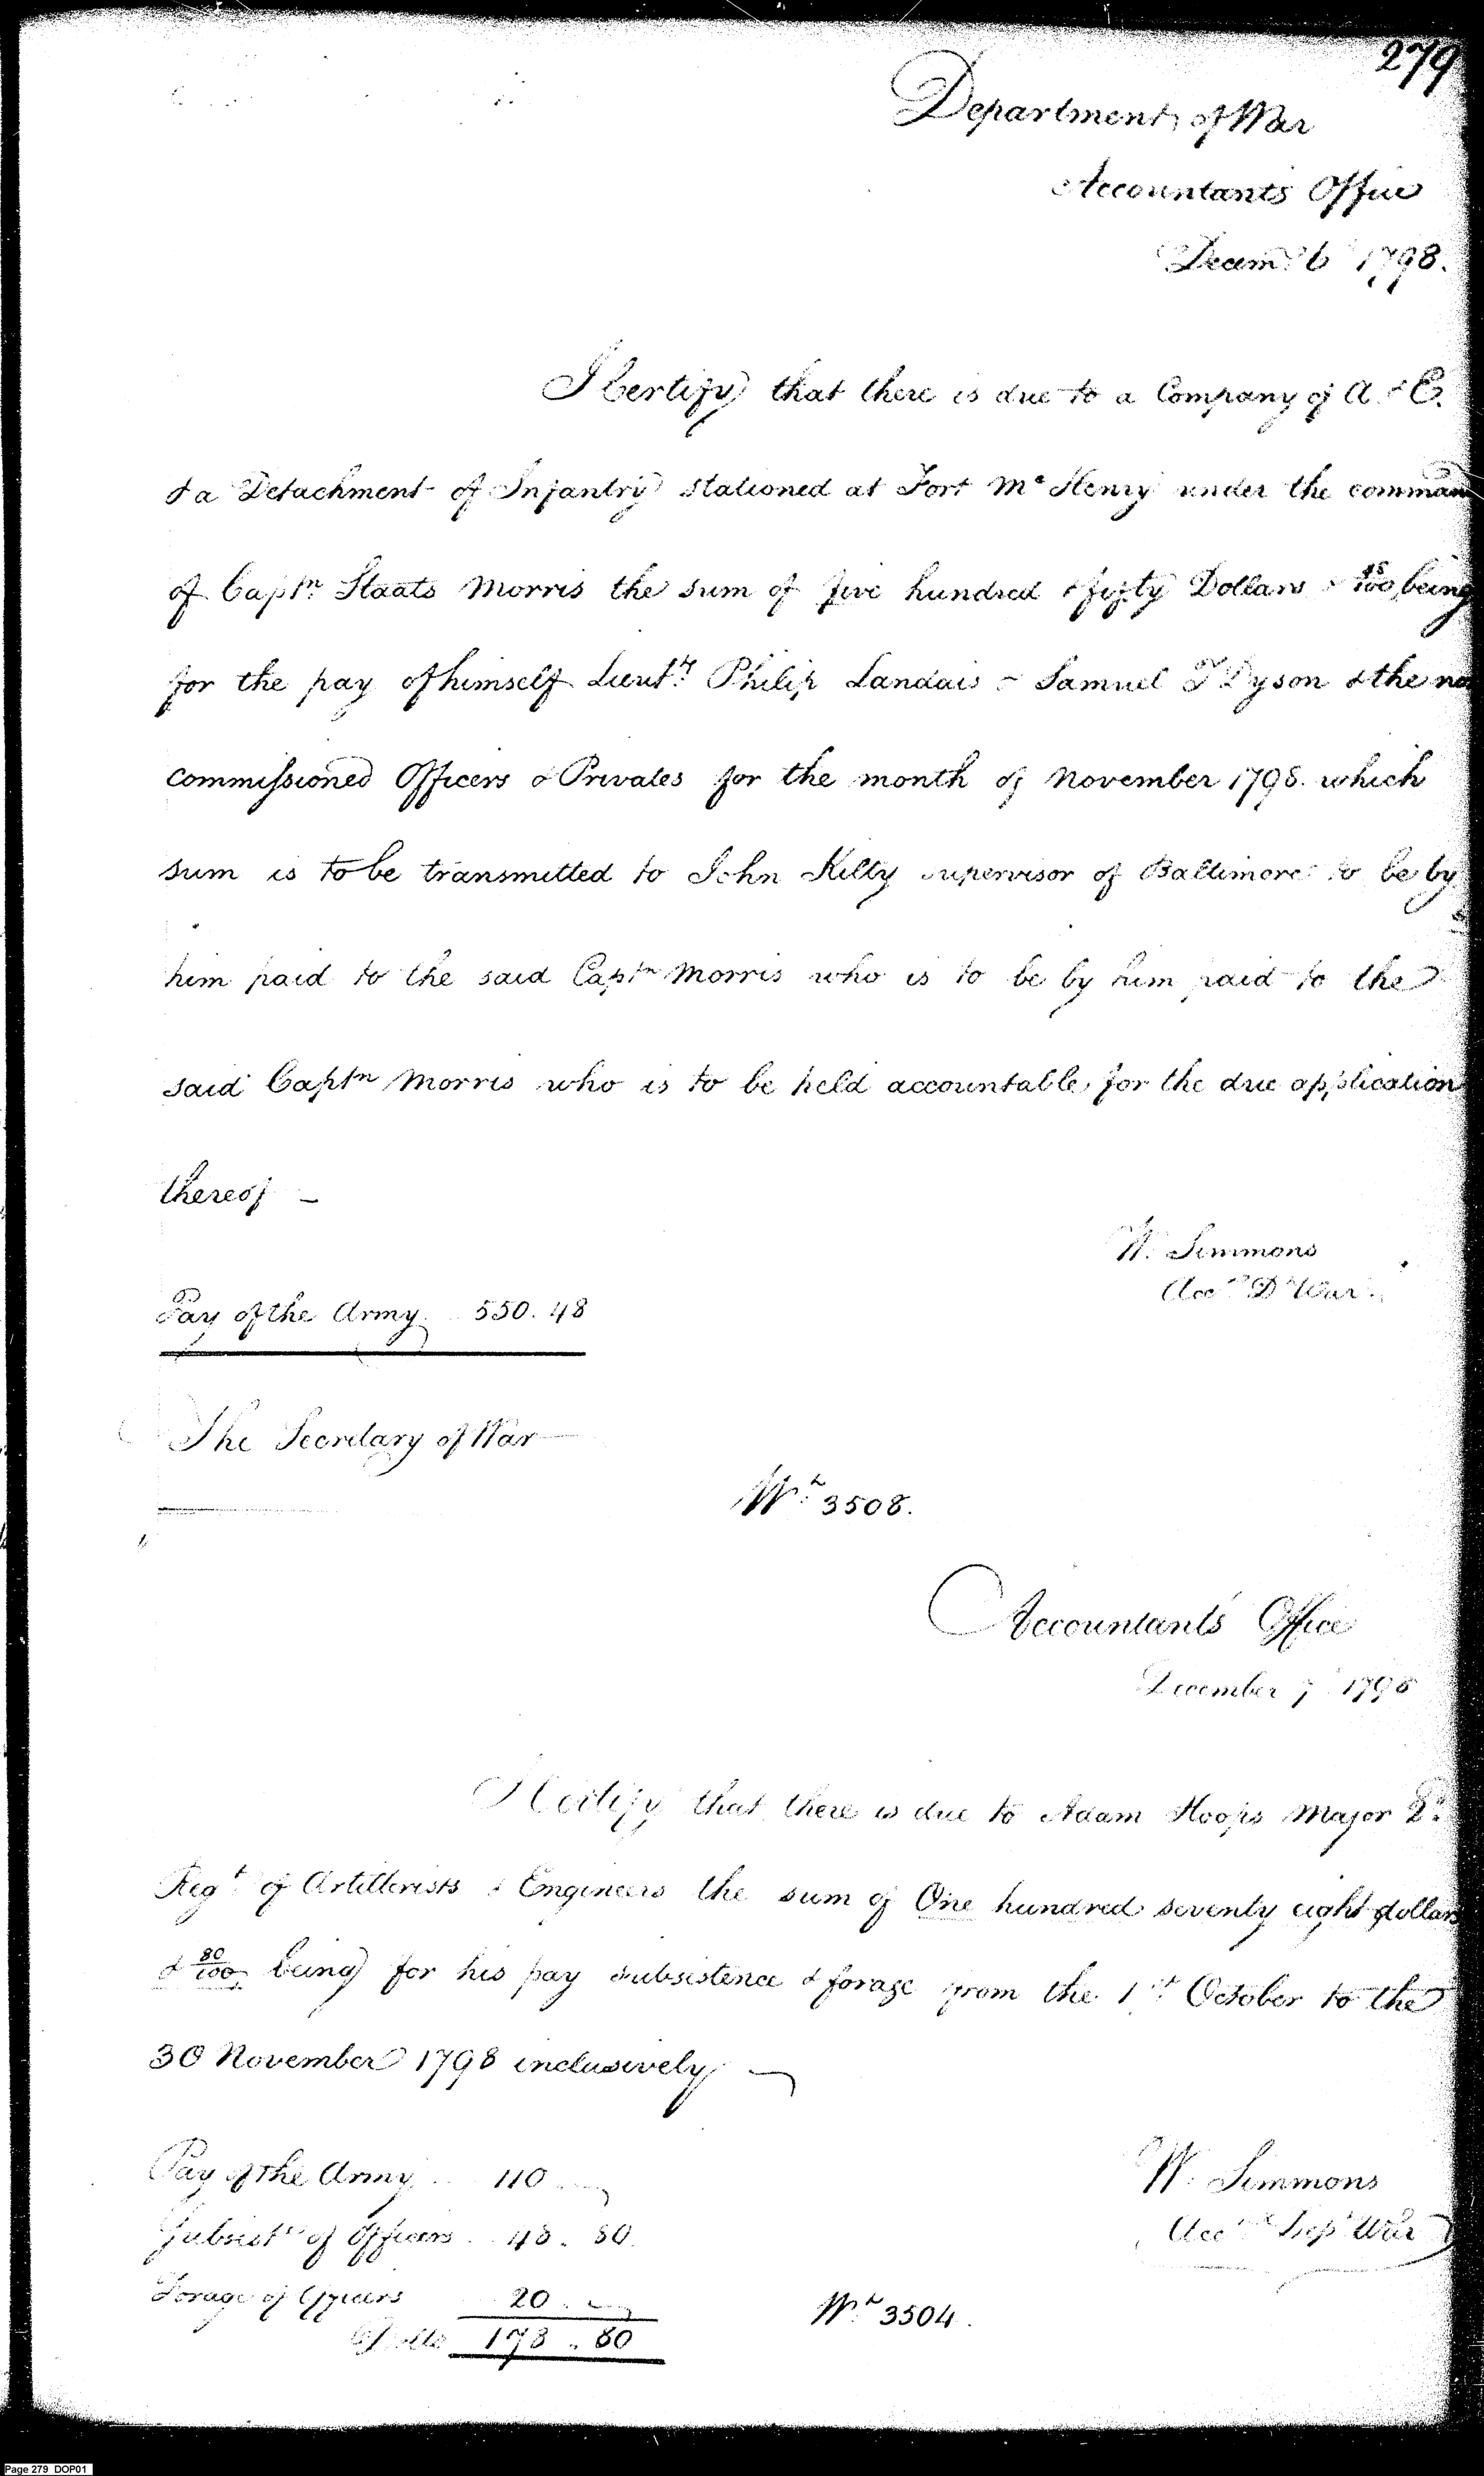 279
Department of War
Accountants Office
Decem.r 6 1798.
I Certify that there is due to a Company of A & E.
& a Detachment of Infantry stationed at Fort Mc Henry under the comman
of Captn. Staats Morris the sum of five hundred & fifty Dollars & 48/100 being
for the pay of himself Lieut.ts Philip Landais & Samuel T Dyson & the no
commissioned Officers & Privates for the month of November 1798. which
sum is to be transmitted to John Kilty supervisor of Baltimore to be by
him paid to the said Captn Morris who is to be by him paid to the
said Captn Morris who is to be held accountable for the due application
thereof —
W. Simmons
Acct. D War.
Pay of the Army . . 550. 48
The Secretary of War
Wt. 3508.
Accountants Office
December 7 1798
I Certify that there is due to Adam Hoops Major 2d.
Regt. of Artillerists & Engineers the sum of One hundred seventy eight dollars
& 80/100 being for his pay subsistence & forage from the 1st. October to the
30 November 1798 inclusively —
Pay of the Army . . 110 . —
W. Simmons
Subsist. of Officers . . 48 . 80.
Acct. Dep War
Forage of Officers 20 . —
Dolls 178 . 80
Wt. 3504.
Page 279 DOP01